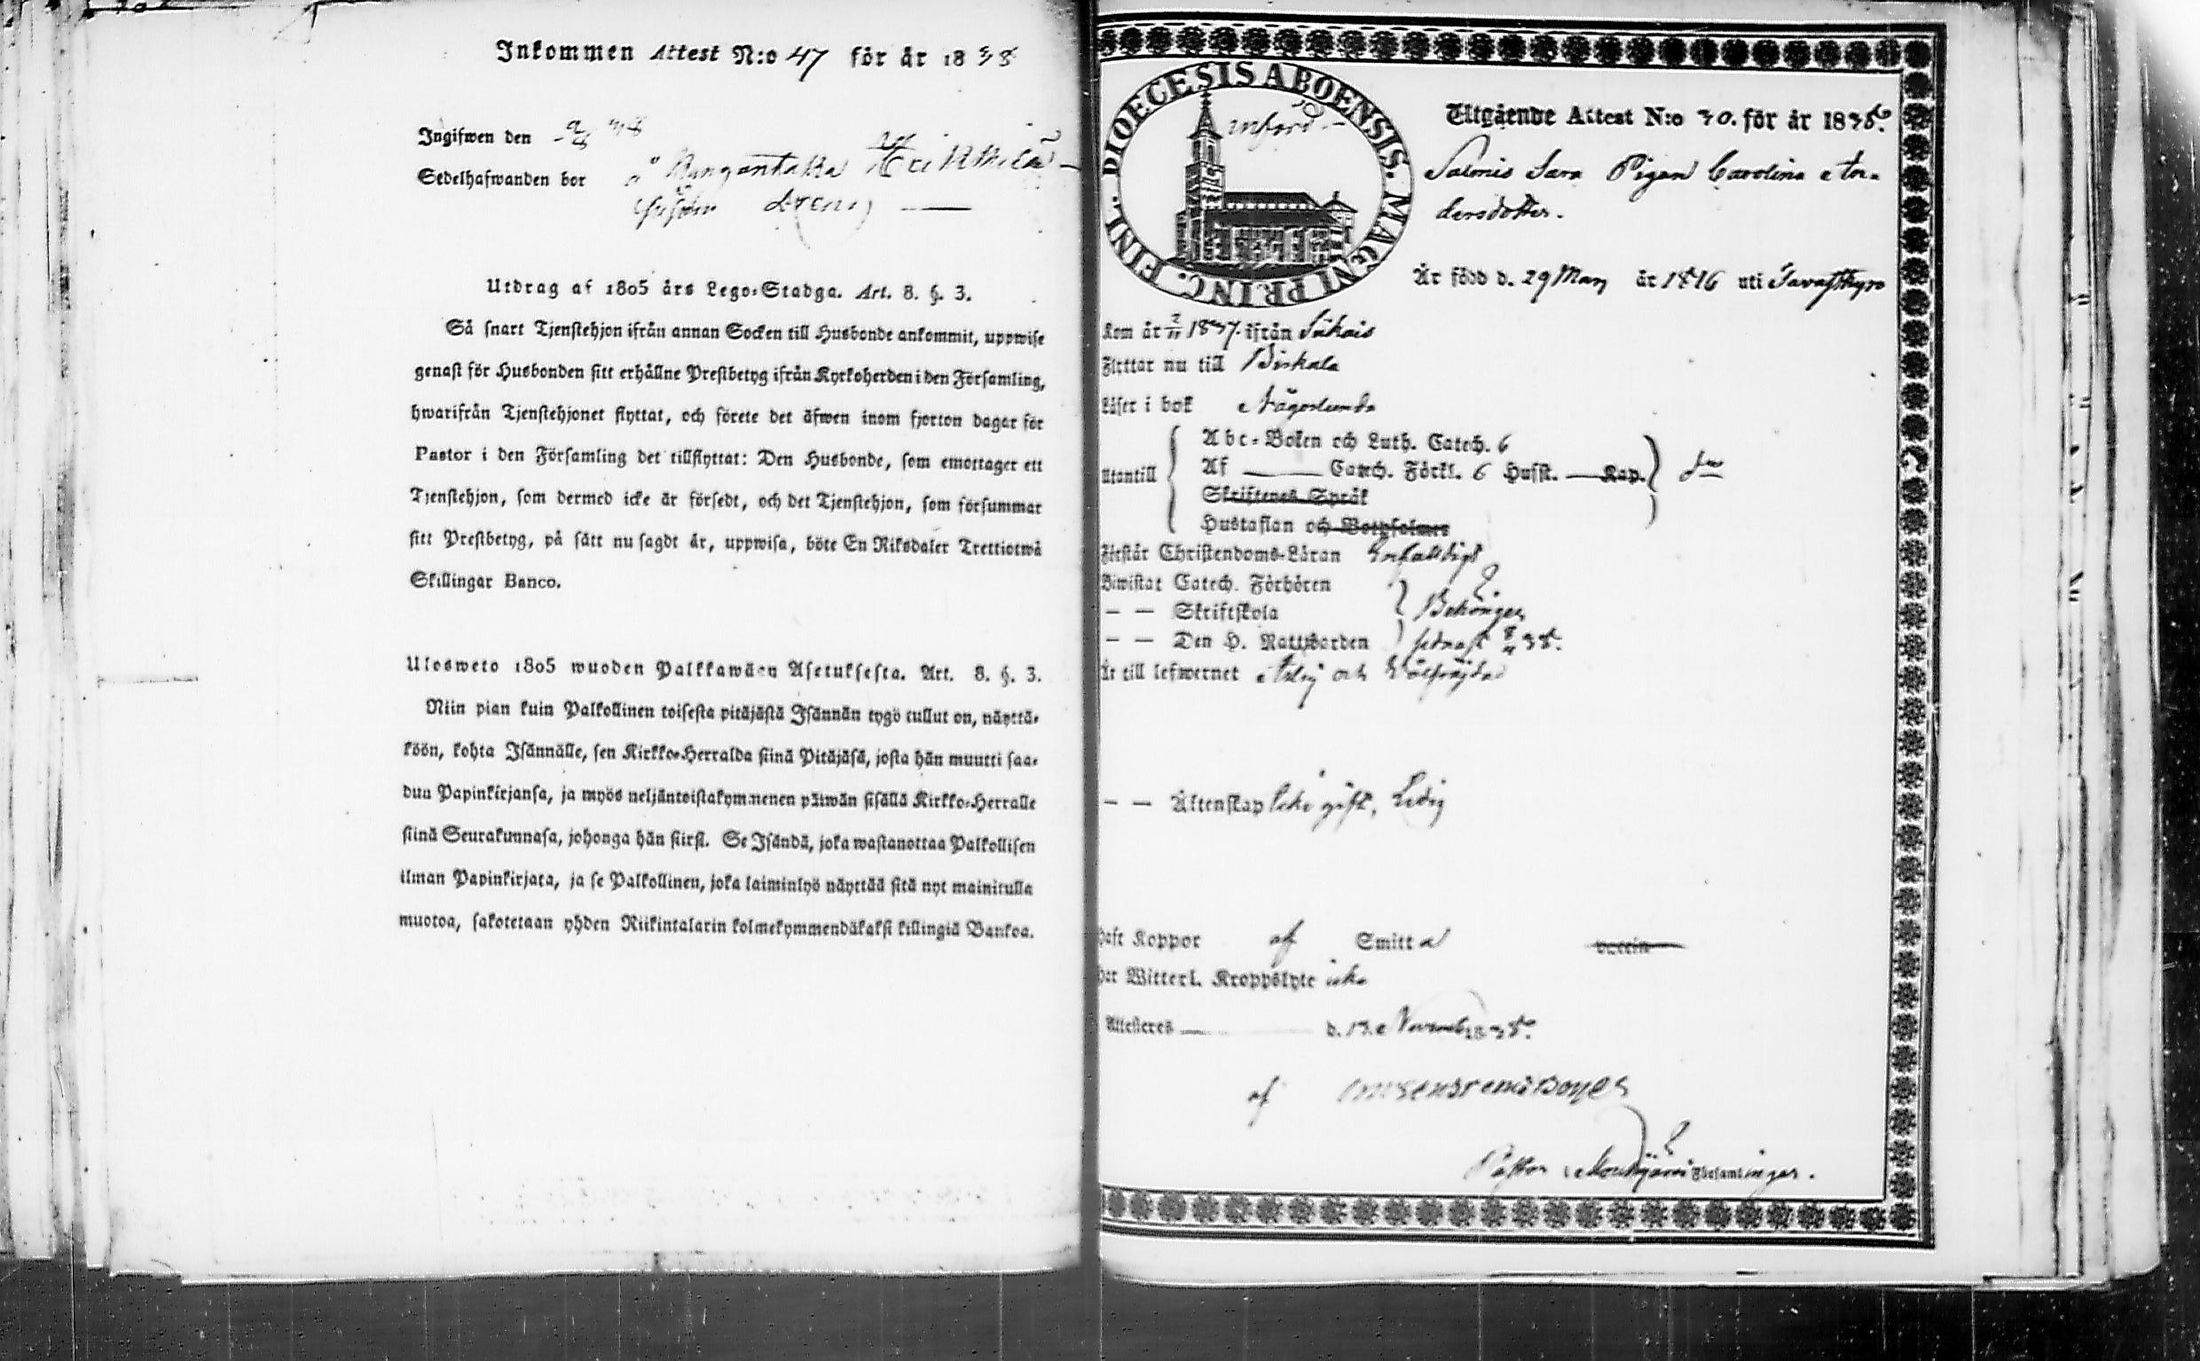 Inkommen Attest N:o 47 för år 1838
Ingifwen den
Sedelhafwanden bor å Kangantaka Heikkilä
dreng
Utdrag af 1805 års Lego-Stadga. Art. 8. §. 3.
Så snart Tjenstehjon ifrån annan Socken till Husbonde ankommit, uppwise
genast för Husbonden sitt erhållne Prestbetyg ifrån Kyrkoherden i den Församling,
hwarifrån Tjenstehjonet flyttat, och förete det äfwen inom fjorton dagar för
Pastor i den Församling det tillflyttat: Den Husbonde, som emottager ett
Tjenstehjon, som dermed icke är försedt, och det Tjenstehjon, som försummar
sitt Prestbetyg, på sätt nu sagdt är, uppwisa, böte En Riksdaler Trettiotwå
Skillingar Banco.
Ulosweto 1805 wuoden Palkkawäen Asetuksesta. Art. 8. §. 3.
Niin pian kuin Palkollinen toisesta pitäjästä Isännän tygö tullut on, näyttä-
köön, kohta Isännälle, sen Kirkko-Herralda siinä Pitäjäsä, josta hän muutti saa-
dun Papinkirjansa, ja myös neljäntoistakymmenen päiwän sisällä Kirkko-Herralle
siinä Seurakunnasa, johonga hän siirsi. Se Isändä, joka wastanottaa Palkollisen
ilman Papinkirjata, ja se Palkollinen, joka laiminlyö näyttää sitä nyt mainitulla
muotoa, sakotetaan yhden Riikintalarin kolmekymmendäkaksi killingiä Bankoa.
DIOECESIS ABOENSIS. MAGNI PRINC. FINL.
införd
Utgående Attest N:o 30. för år 1838.
Salonis Sara Pigan Carolina An-
dersdotter.
Är född d. 29 Maij år 1816 uti Tavastkyro
Kom år 1837. ifrån Säkais
Flyttar nu till Birkala
Läser i bok Någorlunda
Utantill
Abc-Boken och Luth. Catech. 6
Af Catech. Förkl. 6 Hufst. Kap.
Skriftenes Språk
Hustaflan och Botpsalmer
Förstår Christendoms-Läran Enfaldigt
Biwistat Catech. Förhören
— — Skriftskola Behörigen
— — Den H. Nattwarden sednast 38.
Är till lefwernet Ärlig och Wälfräjdad
— — Äktenskap Icke gift, Ledig
Haft Koppor af Smitta vaccin
Har Witterl. Kroppslyte icke
Attesteres d. 13. November 1838.
af
Pastor i Mouhijärvi Församlingar.